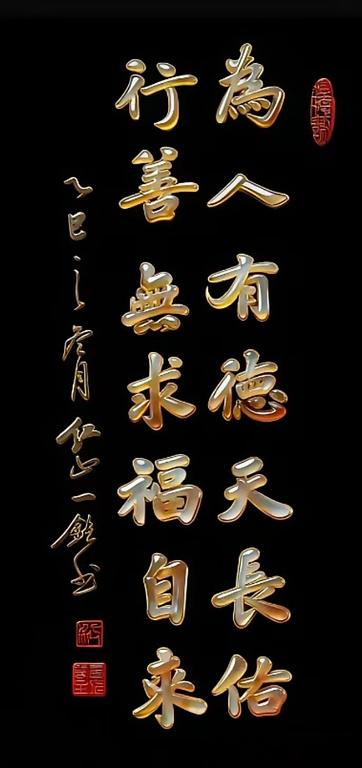 為人有德天長佑
行善無求福自來
乙巳之春月紅山一鉋書